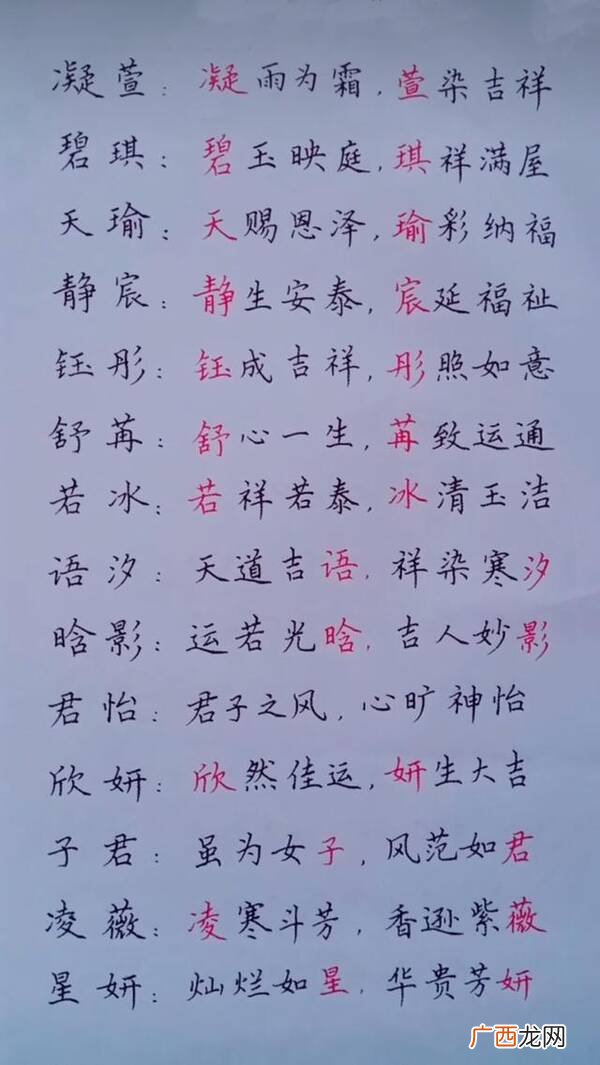 凝萱：凝雨为霜，萱染吉祥
碧琪：碧玉映庭，琪祥满屋
天瑜：天赐恩泽，瑜彩纳福
静宸：静生安泰，宸延福祉
钰彤：钰成吉祥，彤照如意
舒苒：舒心一生，苒致运通
若冰：若祥若泰，冰清玉洁
语汐：天道吉语，祥染寒汐
晗影：运若光晗，吉人妙影
君怡：君子之风，心旷神怡
欣妍：欣然佳运，妍生大吉
子君：虽为女子，风范如君
凌薇：凌寒斗芳，香逊紫薇
星妍：灿烂如星，华贵芳妍
广西龙网